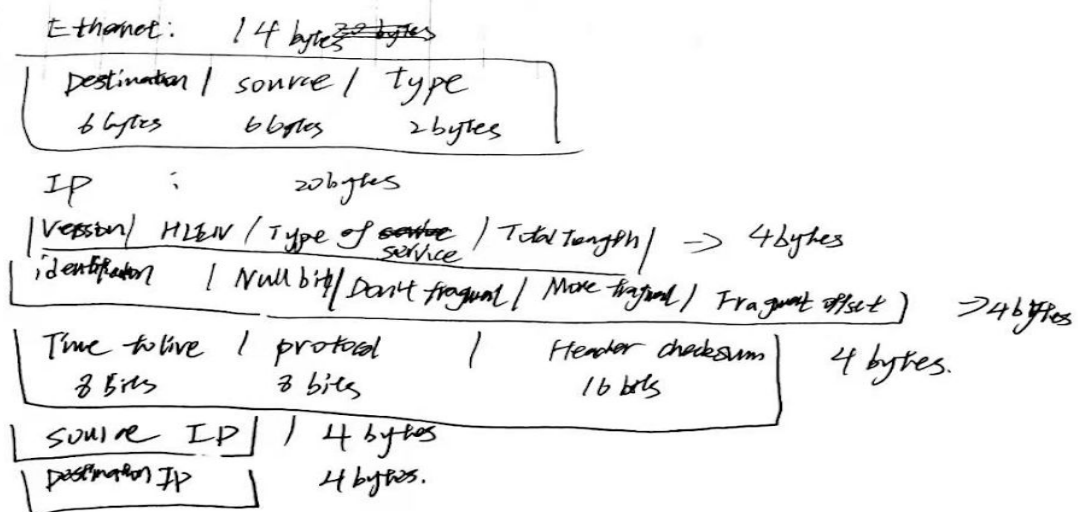 Ethernet: 14 bytes
Destination / source / type
6 bytes 6 bytes 2 bytes
IP : 20 bytes
|Version| HLEN / Type of service / Total Length| -> 4 bytes
identification | Null bit| Don't fragment / More fragment / Fragment offset ) => 4 bytes
Time to live | protocol | Header checksum 4 bytes.
8 bits 8 bits 16 bits
source IP | 4 bytes
Destination IP 4 bytes.